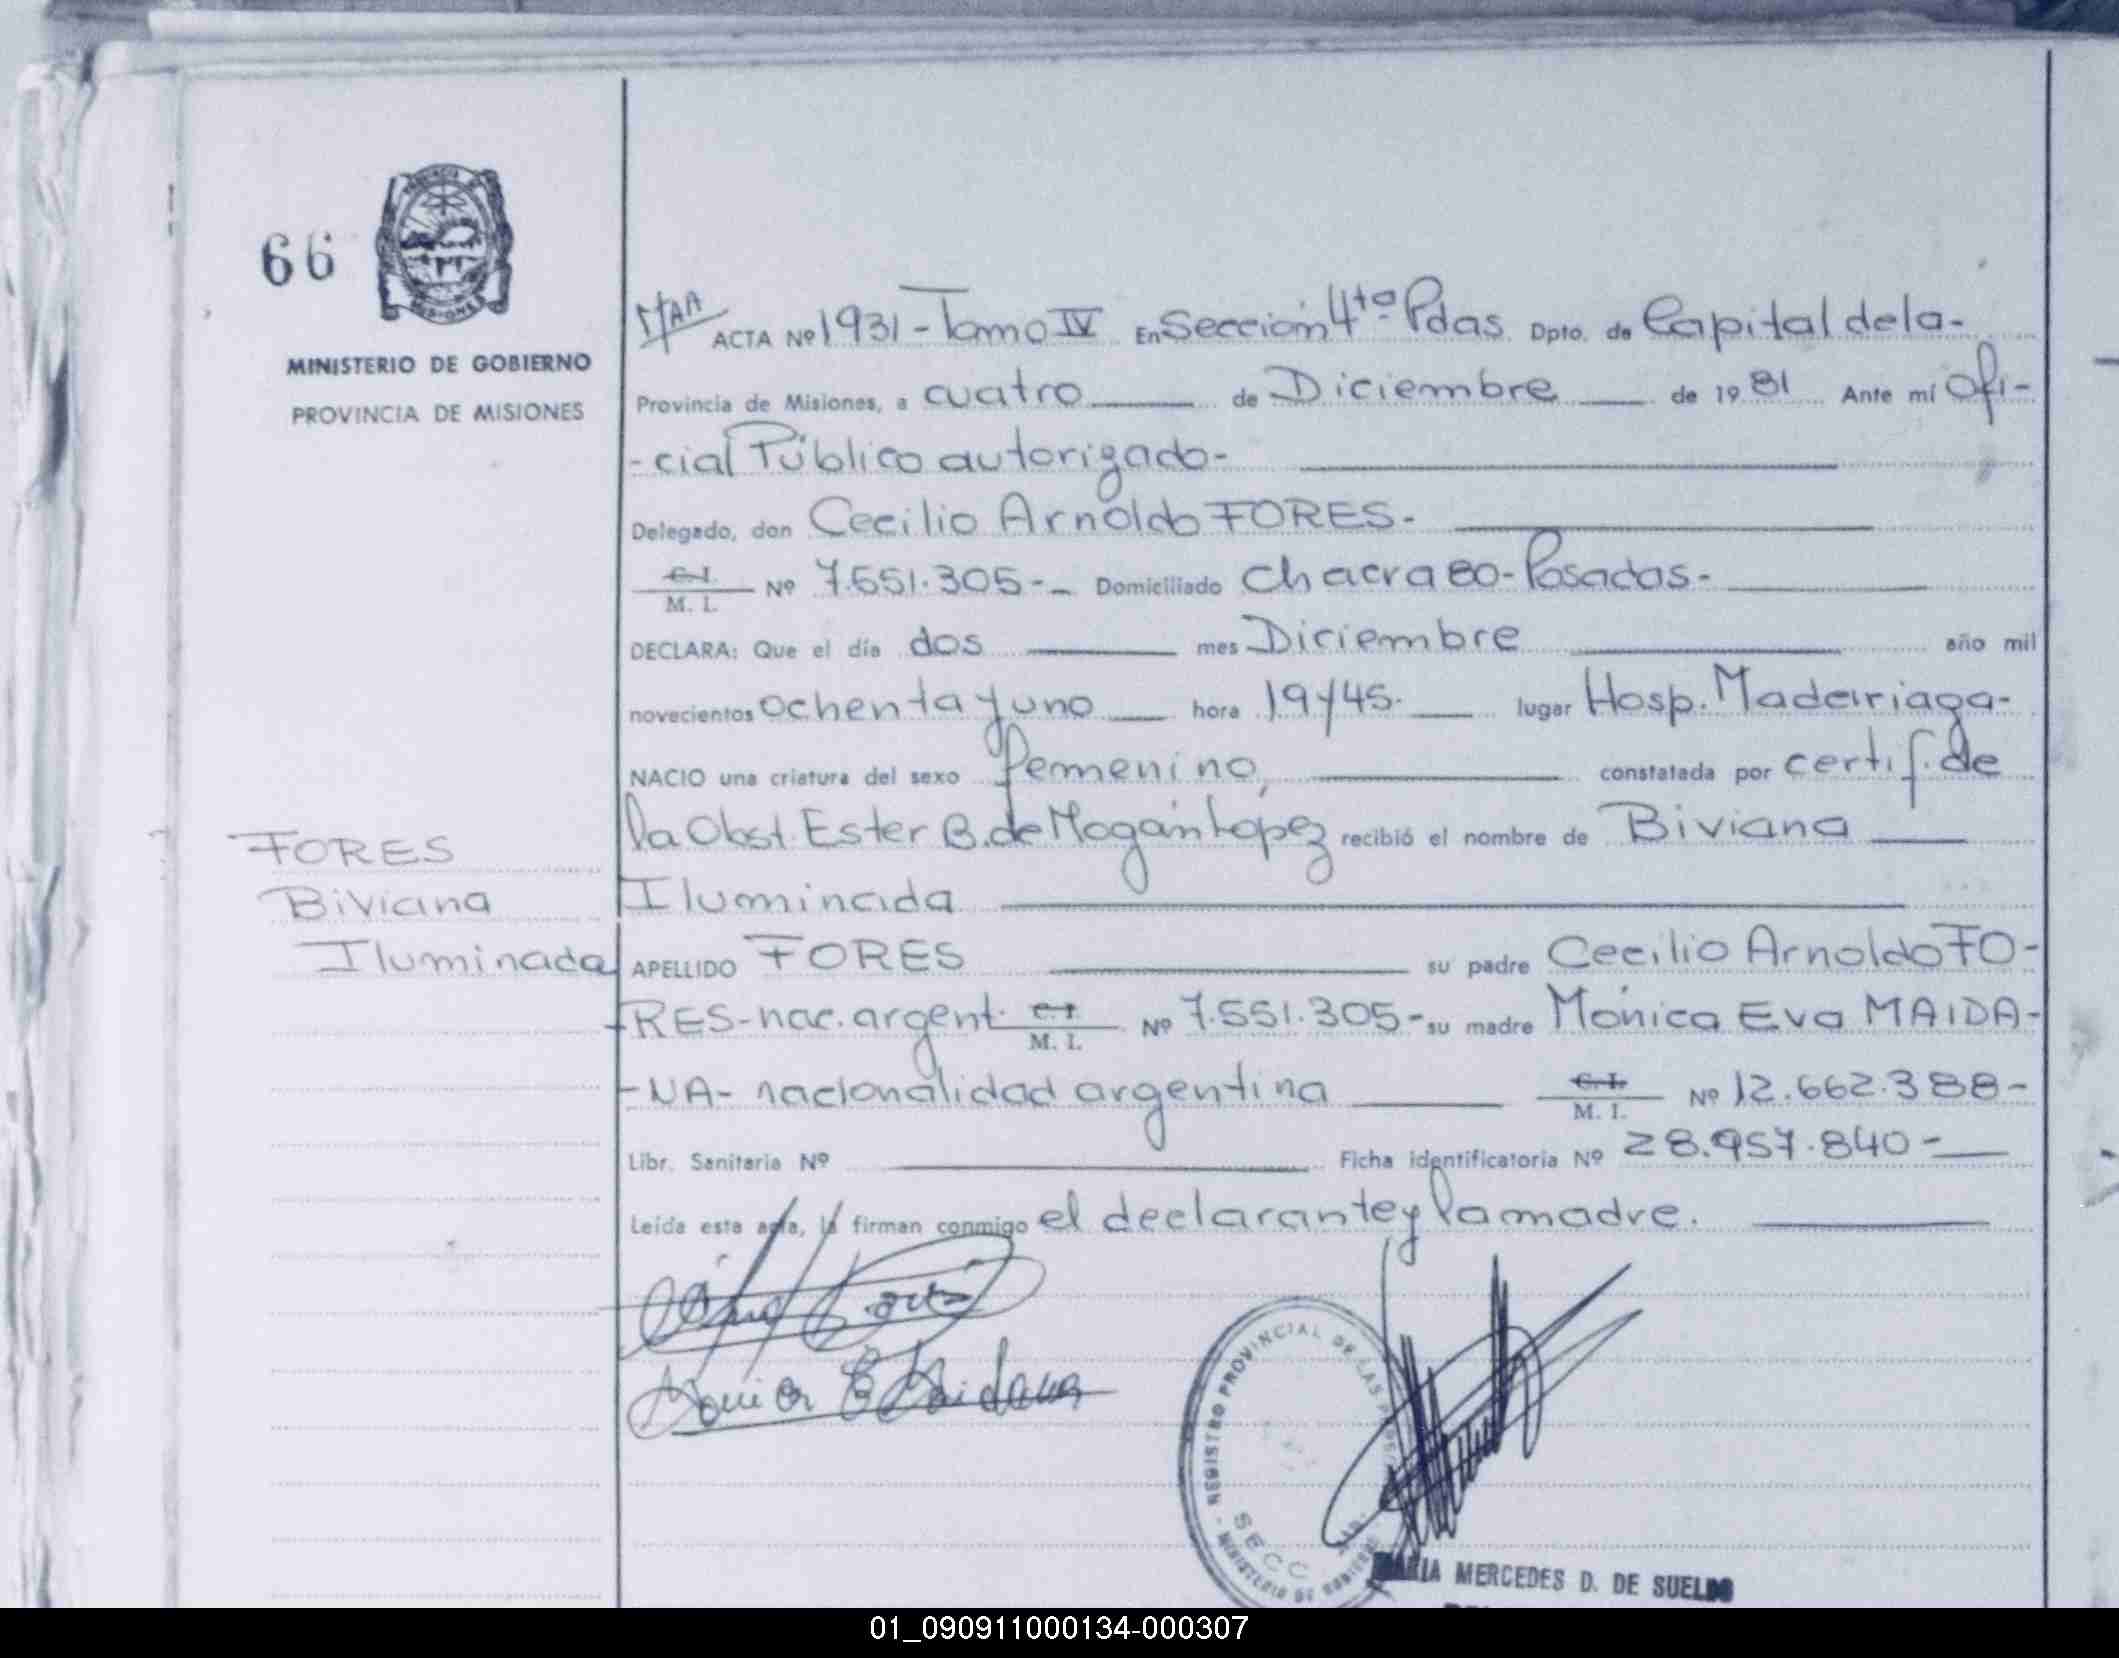 66
MINISTERIO DE GOBIERNO
PROVINCIA DE MISIONES
ACTA Nº 1931-Tomo IV En Sección 4ta Pdas. Dpto. de Capital de la-
Provincia de Misiones, a cuatro de Diciembre de 1981 Ante mí Ofi-
-cial Público autorizado-
Delegado, don Cecilio Arnoldo FORES-
C.I. M. I. Nº 7.551.305-- Domiciliado Chacra 80-Posadas-
DECLARA: Que el día dos mes Diciembre año mil
novecientos ochenta y uno hora 19y45. lugar Hosp. Madariaga-
NACIO una criatura del sexo femenino, constatada por certif. de
la Obst. Ester B. de Mogan López recibió el nombre de Biviana
Iluminada
FORES
Biviana
Iluminada
APELLIDO FORES su padre Cecilio Arnoldo FO-
RES-nac. argent. C.I. M. I. Nº 7.551.305- su madre Mónica Eva MAIDA-
-NA- nacionalidad argentina C.I. M. I. Nº 12.662.388-
Libr. Sanitaria Nº Ficha identificatoria Nº 28.957.840-
Leída esta acta, la firman conmigo el declarante y la madre.
REGISTRO PROVINCIAL DE LAS
SECC
MINISTERIO DE GOBIERNO
MARIA MERCEDES D. DE SUELDO
01_090911000134-000307